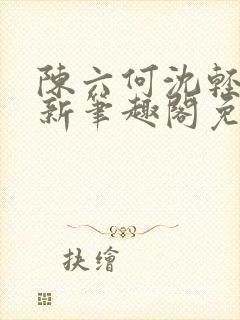 陳六何沈輕
新筆趣閣免
扶繪